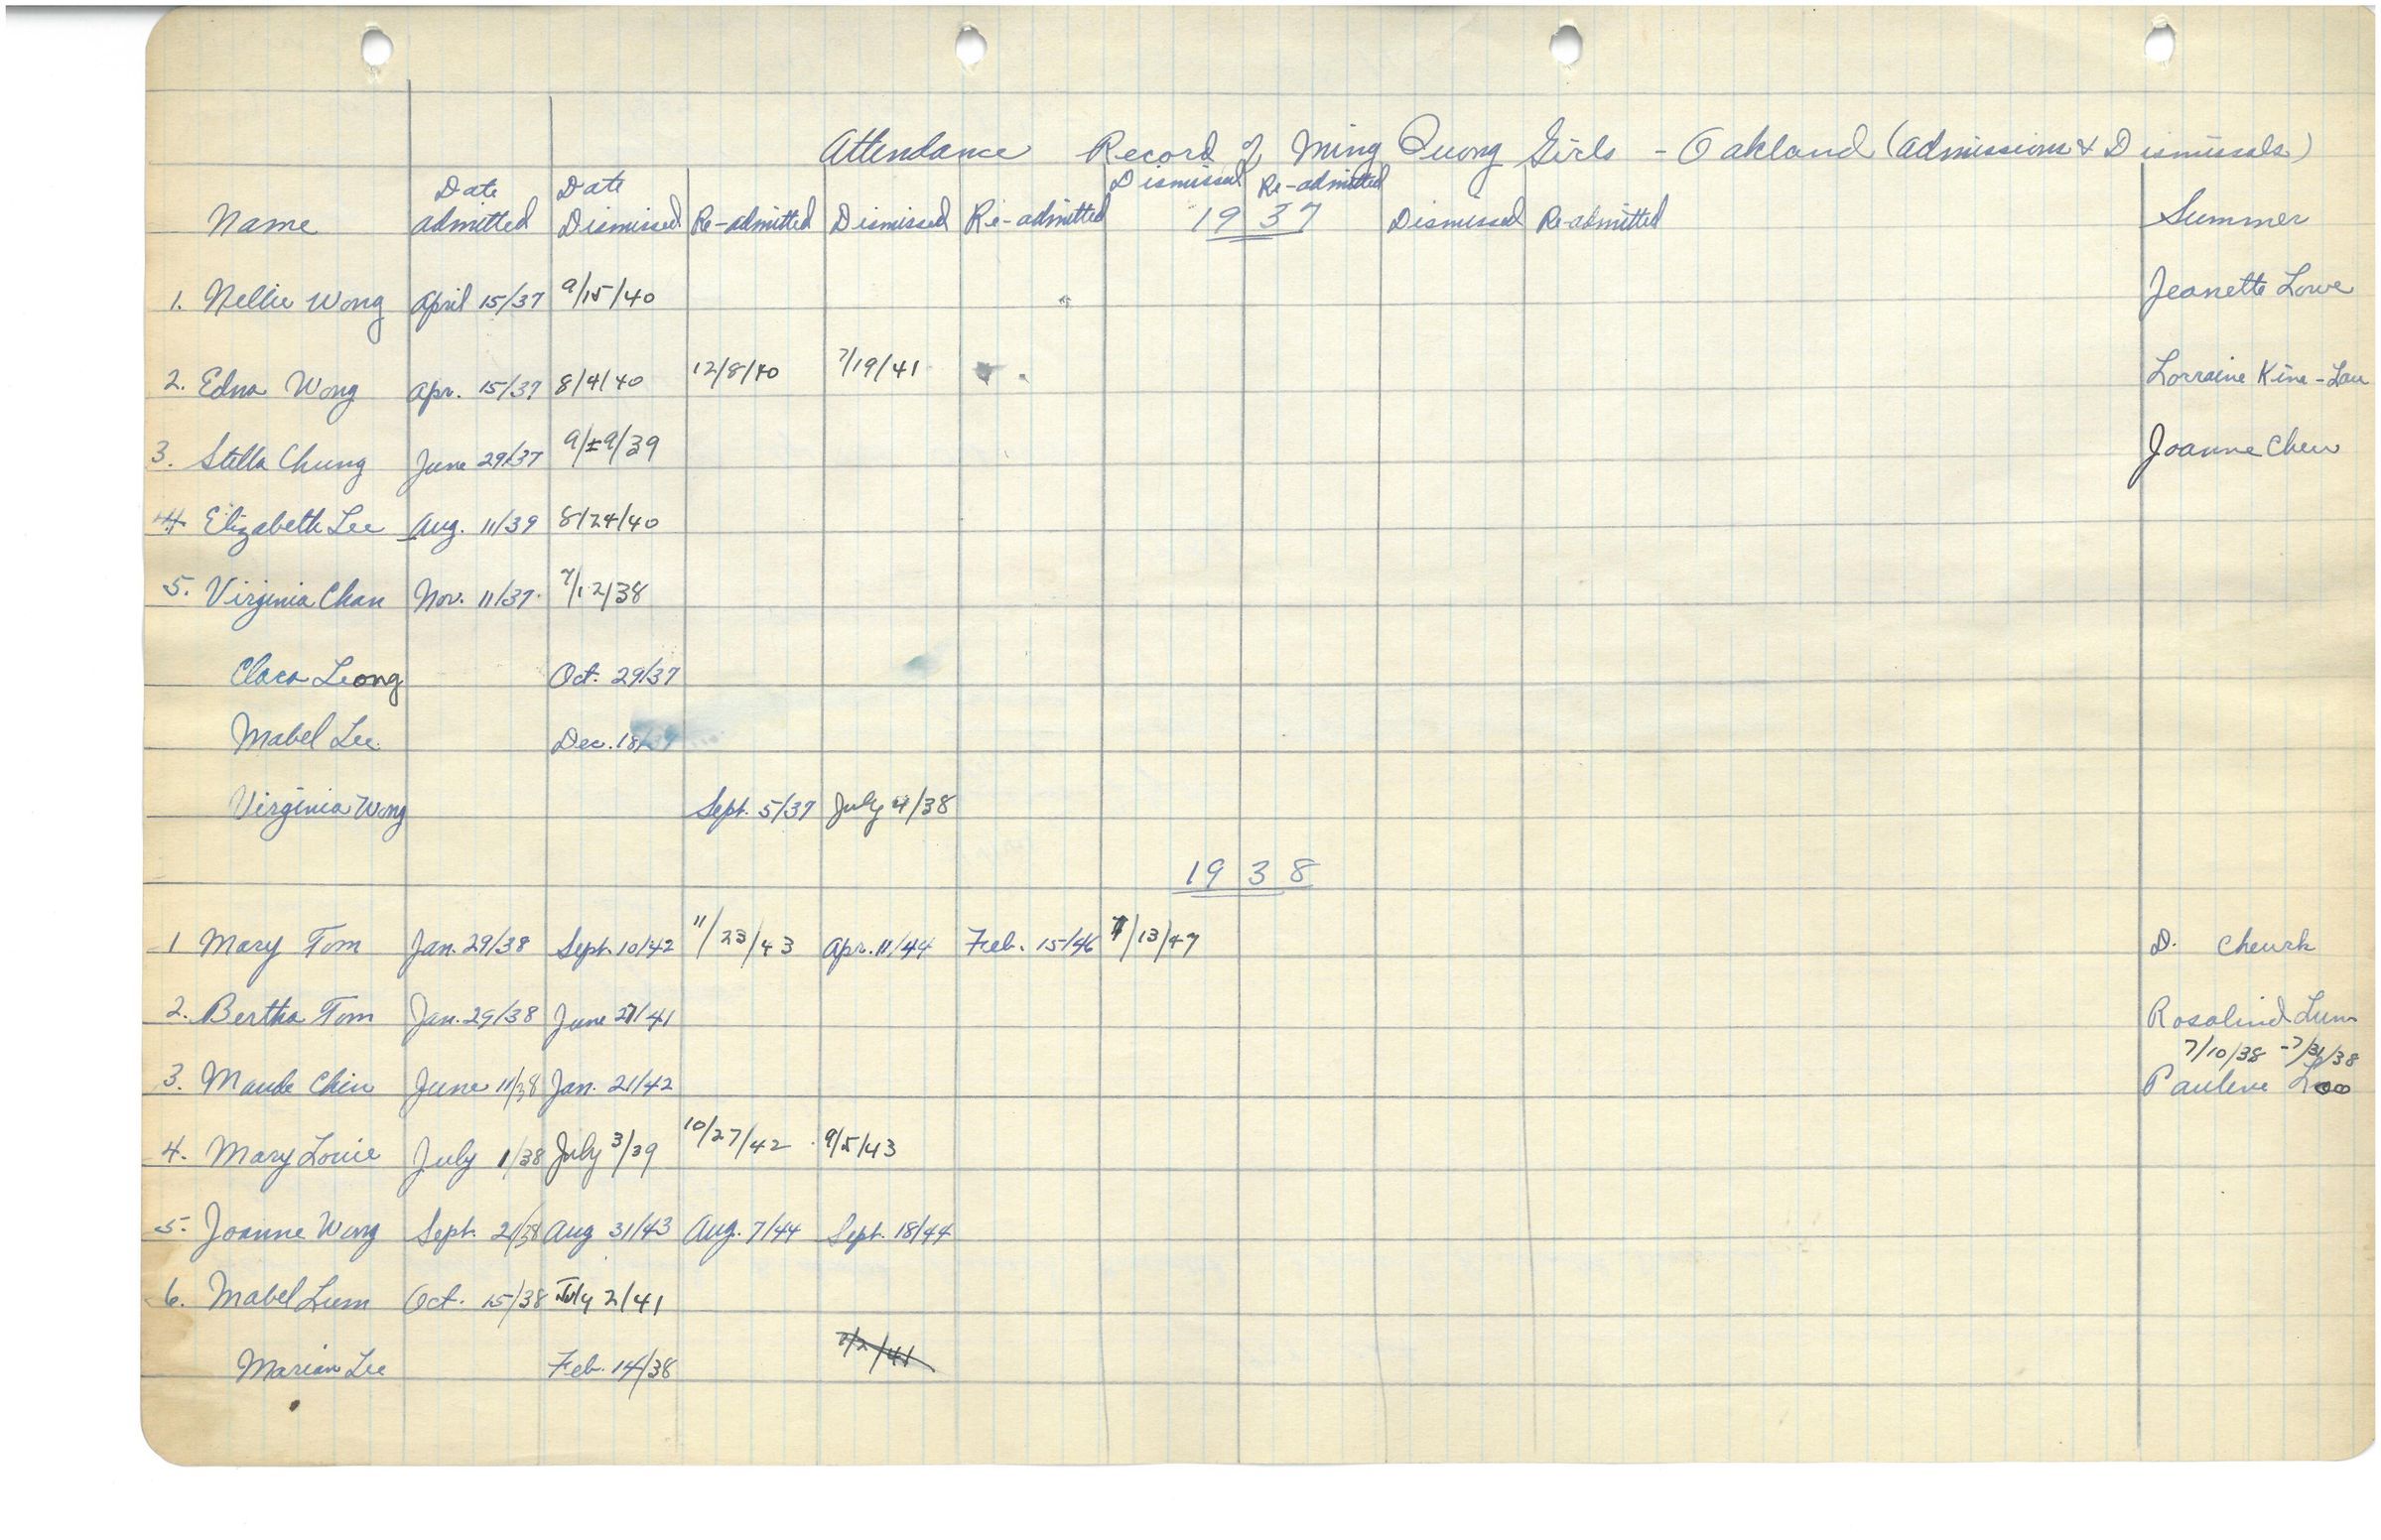 Attendance Record of Ming Quong Girls - Oakland (Admissions & Dismissals)
Name Date admitted Date Dismissed Re-admitted Dismissed Re-admitted Dismissed Re-admitted Dismissed Re-admitted Summer
1937
1. Nellie Wong April 15/37 9/15/40 Jeanette Lowe
2. Edna Wong Apr. 15/37 8/4/40 12/8/40 7/19/41 Lorraine Kine-Lau
3. Stella Chung June 29/37 9/ /39 Joanne Chew
4. Elizabeth Lee Aug. 11/39 8/24/40
5. Virginia Chan Nov. 11/37. 7/12/38
Clara Leong Oct. 29/37
Mabel Lee. Dec. 18/
Virginia Wong Sept. 5/37 July 4/38
1938
1 Mary Tom Jan. 29/38 Sept. 10/42 11/23/43 Apr. 11/44 Feb. 15/46 7/13/47 D. Cheurk
2. Bertha Tom Jan. 29/38 June 21/41 Rosalind Lum
7/10/38 - 7/31/38
3. Maude Chin June 11/38 Jan. 21/42 Pauline Loo
4. Mary Louie July 1/38 July 3/39 10/27/42 9/5/43
5. Joanne Wong Sept. 21/38 Aug 31/43 Aug. 7/44 Sept. 18/44
6. Mabel Lum Oct. 15/38 July 2/41
Marian Lee Feb. 14/38 7/2/41